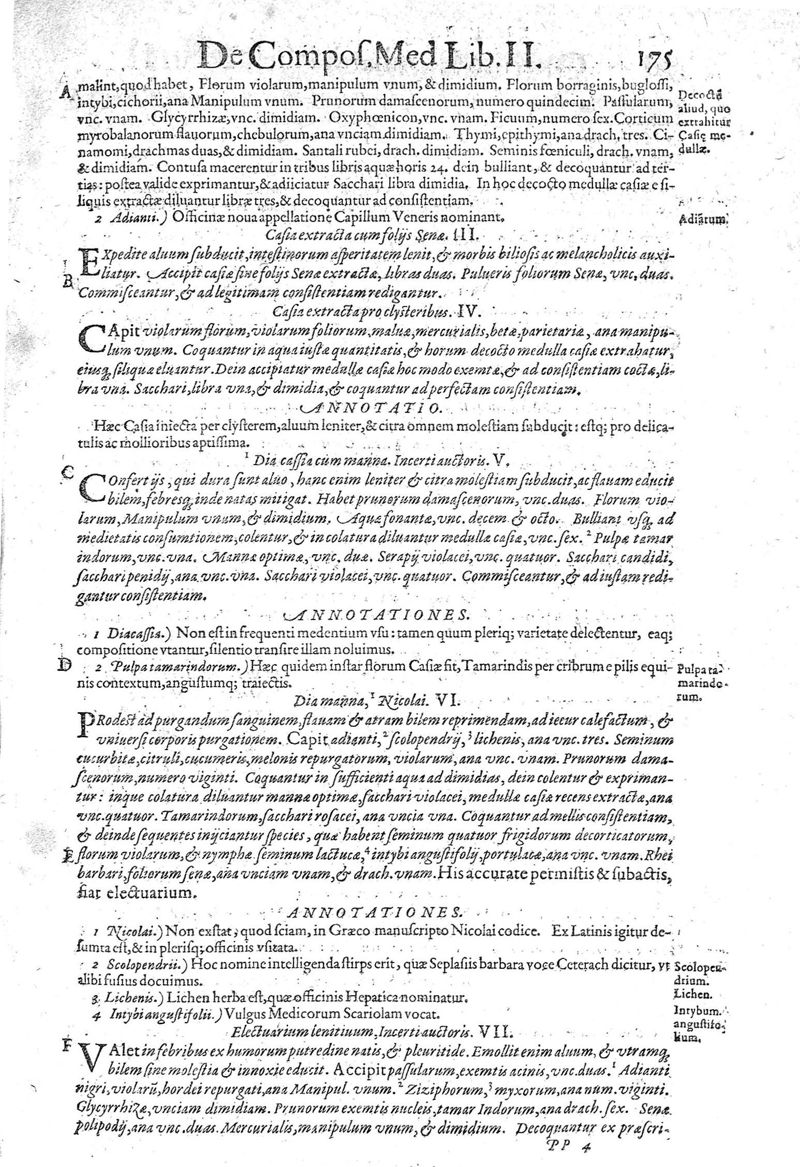 De Compos. Med Lib. II. 175
A malint, quod habet, Florum violarum, manipulum vnum, & dimidium. Florum borraginis, buglossi,
intybi, cichorii, ana Manipulum vnum. Prunorum damascenorum, numero quindecim. Passularum,
vnc. vnam. Glycyrrhizæ, vnc. dimidiam. Oxyphœnicon, vnc. vnam. Ficuum, numero sex. Corticum
myrobalanorum flauorum, chebulorum, ana vnciam dimidiam. Thymi, epithymi, ana drach, tres. Ci-
namomi, drachmas duas, & dimidiam. Santali rubei, drach. dimidiam. Seminis fœniculi, drach. vnam,
& dimidiam. Contusa macerentur in tribus libris aquæ horis 24. dein bulliant, & decoquantur ad ter-
tias: postea valide exprimantur, & adiiciatur Sacchari libra dimidia. In hoc decocto medullæ casiæ e si-
liquis extractæ diluantur libræ tres, & decoquantur ad consistentiam.
Decocta
aliud, quo
extrahitur
Casiæ me-
dullæ.
2 Adianti.) Officinæ noua appellatione Capillum Veneris nominant.
Adiatum.
Casia extracta cum folijs Senæ. III.
EXpedite aluum subducit, intestinorum asperitatem lenit, & morbis biliosis ac melancholicis auxi-
B liatur. Accipit casiæ sine folijs Senæ extractæ, libras duas. Pulueris foliorum Senæ, vnc. duas.
Commisceantur, & ad legitimam consistentiam redigantur.
Casia extracta pro clysteribus. IV.
CApit violarum florum, violarum foliorum, maluæ, mercurialis, betæ, parietariæ, ana manipu-
lum vnum. Coquantur in aqua iustæ quantitatis, & horum decocto medulla casiæ extrahatur,
eiusq; siliquæ eluantur. Dein accipiatur medullæ casiæ hoc modo exemtæ, & ad consistentiam coctæ, li-
bra vna. Sacchari, libra vna, & dimidia, & coquantur ad perfectam consistentiam.
ANNOTATIO.
Hæc Casia iniecta per clysterem, aluum leniter, & citra omnem molestiam subducit: estq; pro delica-
tulis ac mollioribus aptissima.
1 Dia cassia cum manna. Incerti auctoris. V.
C COnfert ijs, qui dura sunt aluo, hanc enim leniter & citra molestiam subducit, ac flauam educit
bilem, febresq; inde natas mitigat. Habet prunorum damascenorum, vnc. duas. Florum vio-
larum, Manipulum vnum, & dimidium. Aquæ fonantæ, vnc. decem & octo. Bulliant vsq; ad
medietatis consumtionem, colentur, & in colatura diluantur medullæ casiæ, vnc. sex. 2 Pulpæ tamar
indorum, vnc. vna. Mannæ optimæ, vnc. duæ. Serapij violacei, vnc. quatuor. Sacchari candidi,
sacchari penidij, ana vnc. vna. Sacchari violacei, vnc. quatuor. Commisceantur, & ad iustam redi-
gantur consistentiam.
ANNOTATIONES.
1 Diacassia.) Non est in frequenti medentium vsu: tamen quum pleriq; varietate delectentur, eaq;
compositione vtantur, silentio transire illam noluimus.
D 2 Pulpa tamarindorum.) Hæc quidem instar florum Casiæ fit, Tamarindis per cribrum e pilis equi-
nis contextum, angustumq; traiectis.
Pulpa ta-
marindo-
rum.
Dia manna, 1 Nicolai. VI.
PRodest ad purgandum sanguinem, flauam & atram bilem reprimendam, ad iecur calefactum, &
vniuersi corporis purgationem. Capit adianti, 2 scolopendrij, 3 lichenis, ana vnc. tres. Seminum
cucurbitæ, citruli, cucumeris, melonis repurgatorum, violarum, ana vnc. vnam. Prunorum dama-
scenorum, numero viginti. Coquantur in sufficienti aqua ad dimidias, dein colentur & expriman-
tur: inque colatura diluantur mannæ optimæ, sacchari violacei, medullæ casiæ recens extractæ, ana
vnc. quatuor. Tamarindorum, sacchari rosacei, ana vncia vna. Coquantur ad mellis consistentiam,
& deinde sequentes inijciantur species, quæ habent seminum quatuor frigidorum decorticatorum,
E florum violarum, & nymphæ seminum lactucæ, 4 intybi angustifolij, portulacæ, ana vnc. vnam. Rhei
barbari, foliorum senæ, ana vnciam vnam, & drach. vnam. His accurate permistis & subactis,
fiat electuarium.
ANNOTATIONES.
1 Nicolai.) Non exstat, quod sciam, in Græco manuscripto Nicolai codice. Ex Latinis igitur de-
sumta est, & in plerisq; officinis vsitata.
2 Scolopendrii.) Hoc nomine intelligenda stirps erit, quæ Seplasiis barbara voce Ceterach dicitur, vt
alibi fusius docuimus.
Scolopen-
drium.
3 Lichenis.) Lichen herba est, quæ officinis Hepatica nominatur.
Lichen.
4 Intybi angustifolii.) Vulgus Medicorum Scariolam vocat.
Intybum.
angustifo-
lium.
Electuarium lenitiuum, Incerti auctoris. VII.
F VAlet in febribus ex humorum putredine natis, & pleuritide. Emollit enim aluum, & vtramq;
bilem sine molestia & innoxie educit. Accipit passularum, exemtis acinis, vnc. duas. 1 Adianti
nigri, violarū, hordei repurgati, ana Manipul. vnum. 2 Ziziphorum, 3 myxorum, ana num. viginti.
Glycyrrhizæ, vnciam dimidiam. Prunorum exemtis nucleis, tamar Indorum, ana drach. sex. Senæ
polipodij, ana vnc. duas. Mercurialis, manipulum vnum, & dimidium. Decoquantur ex præscri-
PP 4